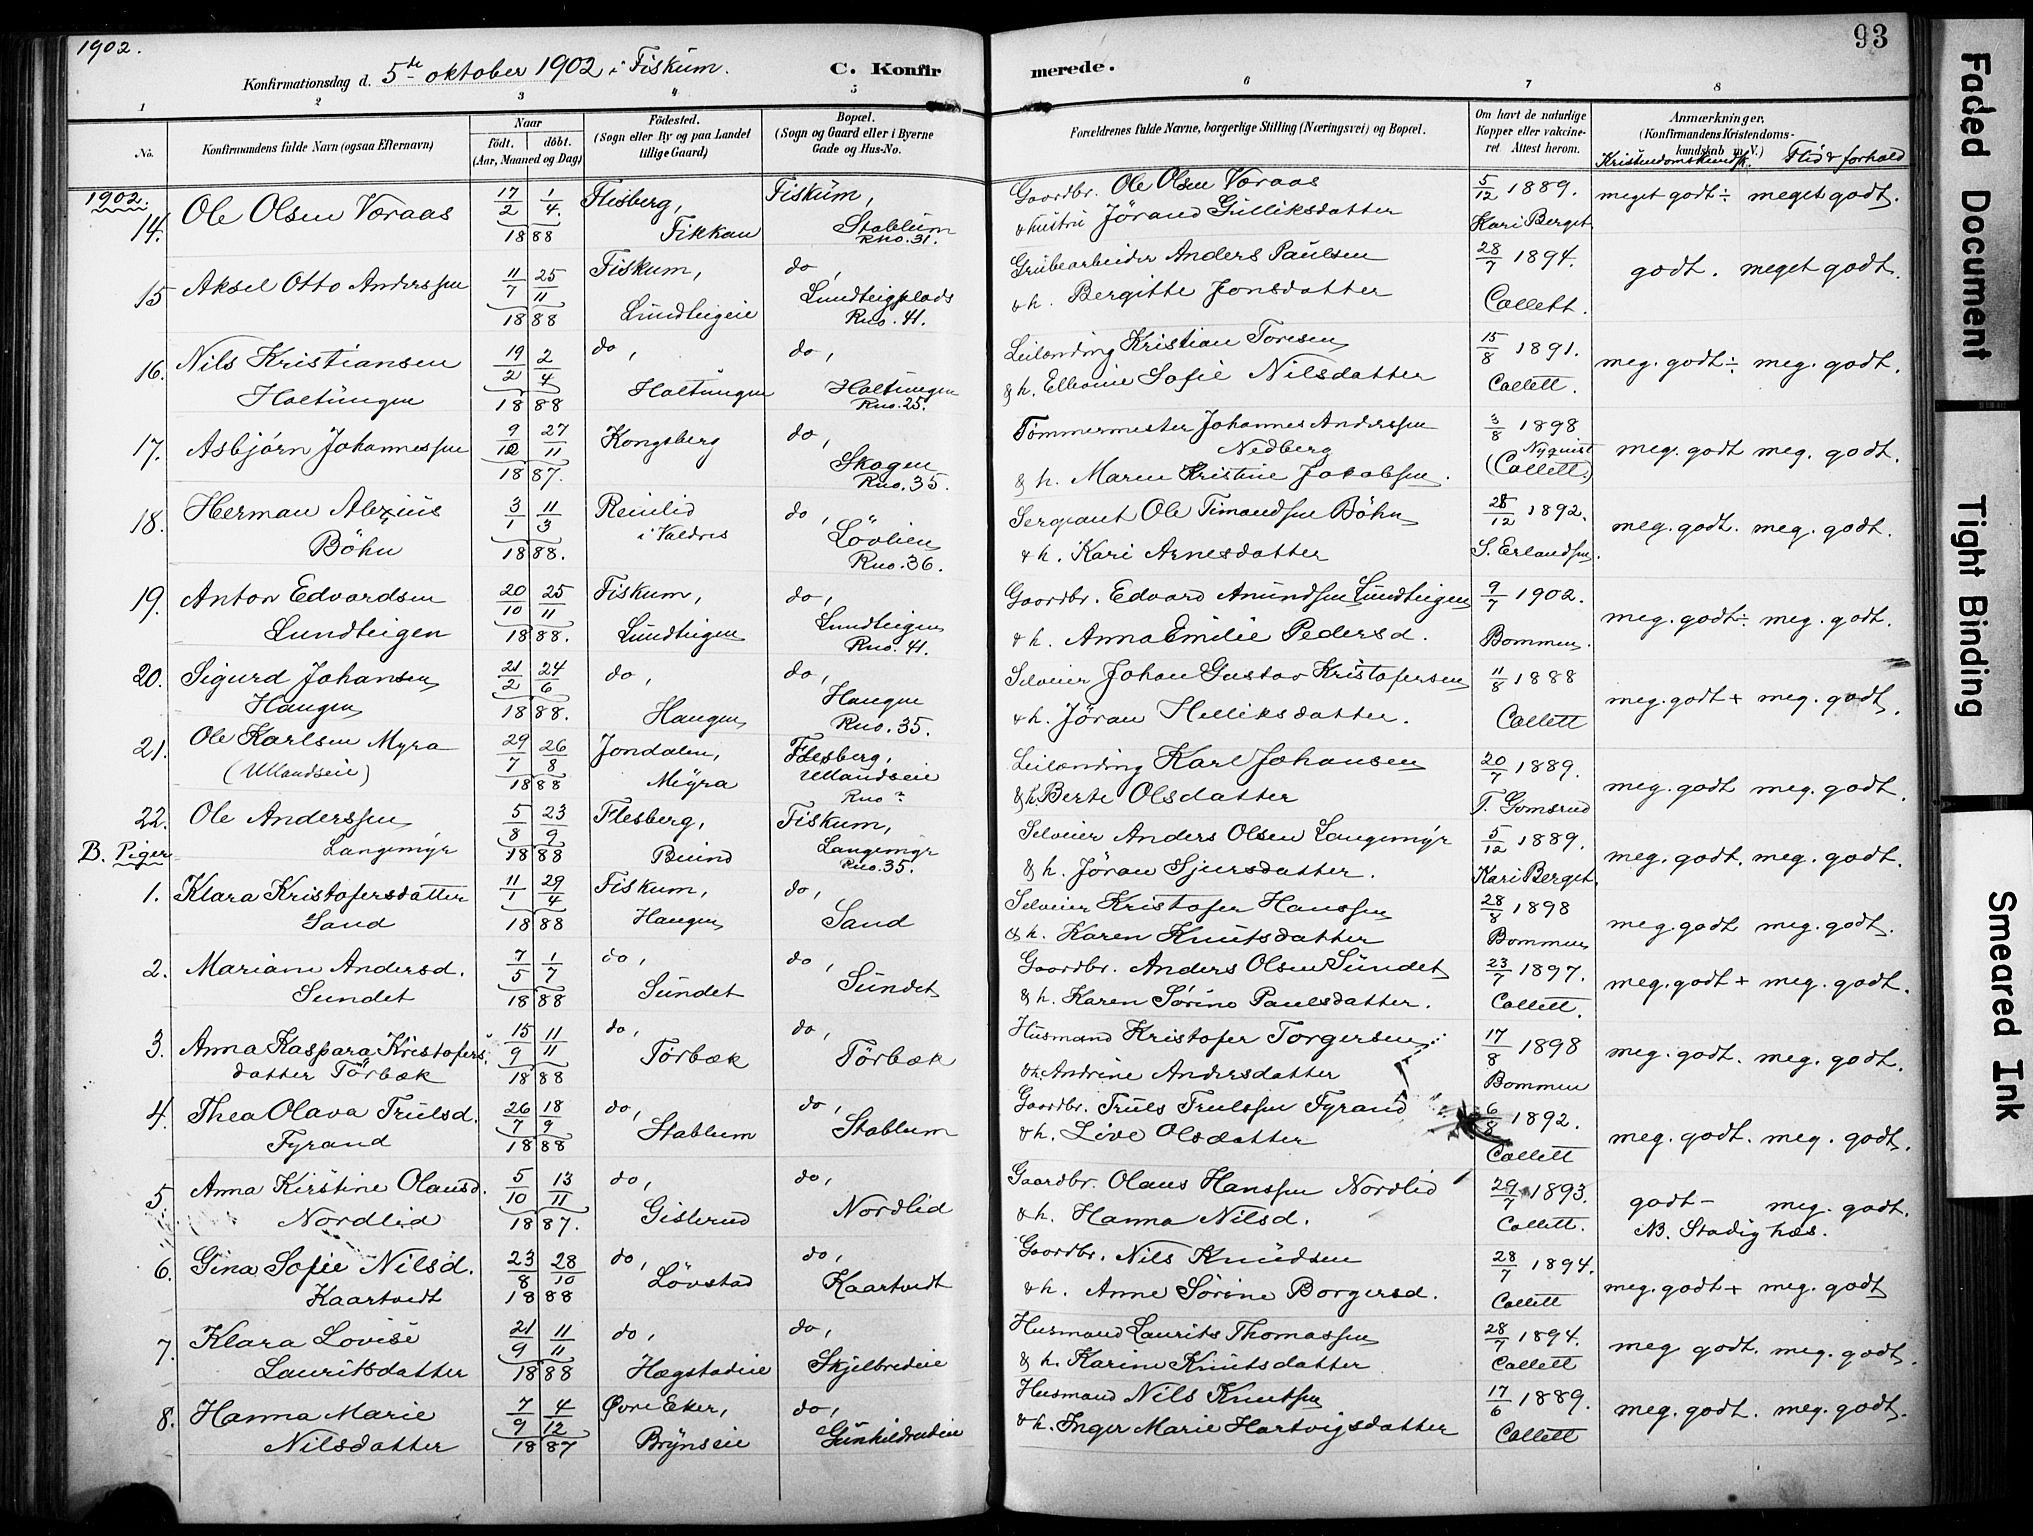 1902.
93
Konfirmationsdag d. 5te oktober 1902 i Fiskum.
C. Konfir
merede.
1
2
3
4
5
6
7
8
No.
Konfirmandens fulde Navn (ogsaa Efternavn)
Naar
født. døbt.
(Aar, Maaned og Dag)
Fødested.
(Sogn eller By og paa Landet
tillige Gaard)
Bopæl.
(Sogn og Gaard eller i Byerne
Gade og Hus-No.
Forældrenes fulde Navne, borgerlige Stilling (Næringsvei) og Bopæl.
Om havt de naturlige
Kopper eller vakcine-
ret Attest herom.
Anmærkninger.
(Konfirmandens Kristendoms-
kundskab m. V.)
Kristendomskundsk. Flid & forhold
1902.
14. Ole Olsen Væraas 17/2 1/4 1888 Flesberg, Fikkan Fiskum, Stablum Rno. 31. Gaardbr. Ole Olsen Væraas
& hustru Jørand Gulliksdatter 5/12 1889. Kari Berget meget godt ÷ meget godt.
15 Aksel Otto Anderssen 11/7 25/11 1888 Fiskum, Lundteigeie do, Lundteigplads Rno. 41. Grubearbeider Anders Paulsen
& h. Bergitte Jonsdatter 28/7 1894. Collett. godt. meget godt.
16. Nils Kristiansen
Holtungen 19/2 2/4 1888 do, Holtungen do, Holtungen Rno. 25. Leilænding Kristian Toresen
& h. Elleonine Sofie Nilsdatter 15/8 1891. Collett. meg. godt ÷ meg. godt.
17. Asbjørn Johannessen 9/10 27/11 1887. Kongsberg do, Skogen Rno. 35. Tømmermester Johannes Anderssen
Nedberg
& h. Maren Kristine Jakobsen. 3/8 1898 Nyquist (Collett.) meg. godt meg. godt.
18. Herman Alexius
Böhn 3/1 11/3 1888. Reinlid i Valdres do, Lövlien Rno. 36. Sergeant Ole Timandsen Böhn
& h. Kari Arnesdatter 28/12 1892. S. Erlandsen. meg. godt. meg. godt.
19. Anton Edvardsen
Lundteigen 20/10 25/11 1888. Fiskum, Lundteigen do, Lundteigen Rno. 41. Gaardbr. Edvard Amundsen Lundteigen
& h. Anna Emilie Pedersd. 9/7 1902. Bommen. meg. godt ÷ meg. godt.
20. Sigurd Johansen
Haugen 21/2 24/6 1888. do, Haugen do, Haugen Rno. 35. Selveier Johan Gustav Kristofersen
& h. Jøran Helliksdatter. 11/8 1888 Collett meg. godt + meg. godt.
21. Ole Karlsen Myra
(Ullandseie) 29/7 26/8 1888 Jondalen, Myra Flesberg, Ullandseie Rno ? Leilænding Karl Johansen
& h. Berte Olsdatter 20/7 1889. T. Gomsrud meg. godt meg. godt.
22. Ole Anderssen
Langemyr 5/8 23/9 1888 Flesberg, Buind Fiskum, Langemyr Rno. 35. Selveier Anders Olsen Langemyr
& h. Jøran Sjursdatter. 5/12 1889. Kari Berget. meg. godt. meg. godt.
B. Piger
1. Klara Kristofersdatter
Sand 11/1 29/4 1888 Fiskum, Haugen do, Sand Selveier Kristofer Hanssen
& h. Karen Knutsdatter 28/8 1898 Bommen meg. godt meg. godt.
2. Mariane Andersd.
Sundet 7/5 1/7 1888 do, Sundet do, Sundet Gaardbr. Anders Olsen Sundet
& h. Karen Sørine Paulsdatter. 23/7 1897. Collett. meg. godt + meg. godt.
3. Anna Kaspara Kristofers-
datter Törbæk 15/9 11/11 1888 do, Törbæk do, Törbæk Husmand Kristofer Torgersen
& h. Andrine Andersdatter 17/8 1898 Bommen meg. godt. meg. godt.
4. Thea Olava Trulsd.
Fyrand 26/7 18/9 1888 do, Stablum do, Stablum Gaardbr. Truls Trulssen Fyrand
& h. Live Olsdatter 6/8 1892. Collett meg. godt. meg. godt.
5. Anna Kirstine Olausd.
Nordlid 5/10 13/11 1887. do, Gisterud do, Nordlid Gaardbr. Olaus Hanssen Nordlid
& h. Hanna Nilsd. 29/7 1893. Collett. godt - meg. godt.
NB. Stadig hæs.
6. Gina Sofie Nilsd.
Kaartvedt 23/8 28/10 1888 do, Lövstad do, Kaartvedt Gaardbr. Nils Knudsen
& h. Anne Sörine Borgersd. 28/7 1894. Collett meg. godt + meg. godt
7. Klara Lovise
Lauritsdatter 21/9 11/11 1888 do, Hægstadeie do, Skjelbredeie Husmand Laurits Thomassen
& h. Karine Knutsdatter 28/7 1894. Collett meg godt. meg. godt.
8. Hanna Marie
Nilsdatter 7/9 4/12 1887 Øvre Eker, Brynseie do, Gunhildrudeie Husmand Nils Knutsen
& h. Inger Marie Hartvigsdatter 17/6 1889. Collett meg. godt. meg. godt.
Faded Document
Tight Binding
Smeared Ink